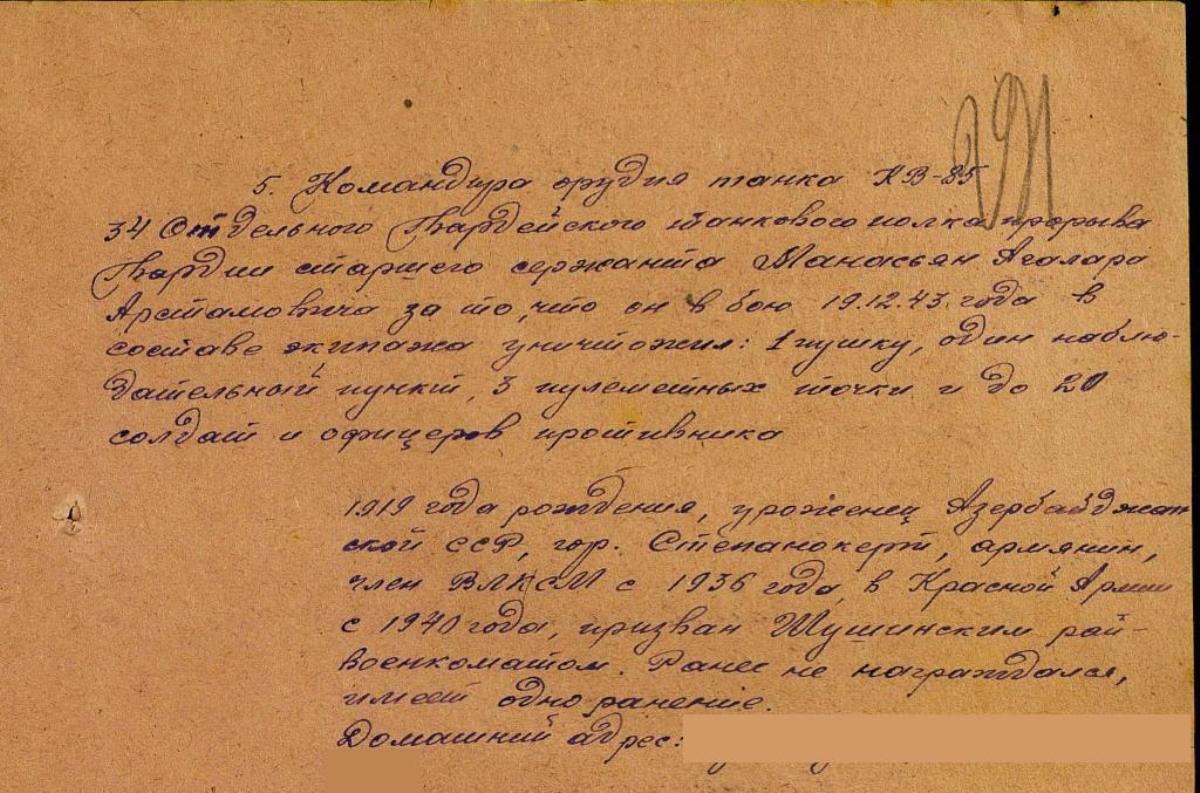 291
5. Командира орудия танка КВ-85
34 Отдельного Гвардейского танкового полка прорыва
Гвардии старшего сержанта Манасьян Агалара
Арстамовича за то, что он в бою 19.12.43 года в
составе экипажа уничтожил: 1 пушку, один наблю-
дательный пункт, 3 пулеметных точки и до 20
солдат и офицеров противника
1919 года рождения, уроженец Азербайджан
ской ССР, гор. Степанокерт, армянин,
член ВЛКСМ с 1936 года, в Красной Армии
с 1940 года, призван Шушинским рай-
военкоматом. Ранее не награждался,
имеет одно ранение.
Домашний адрес: